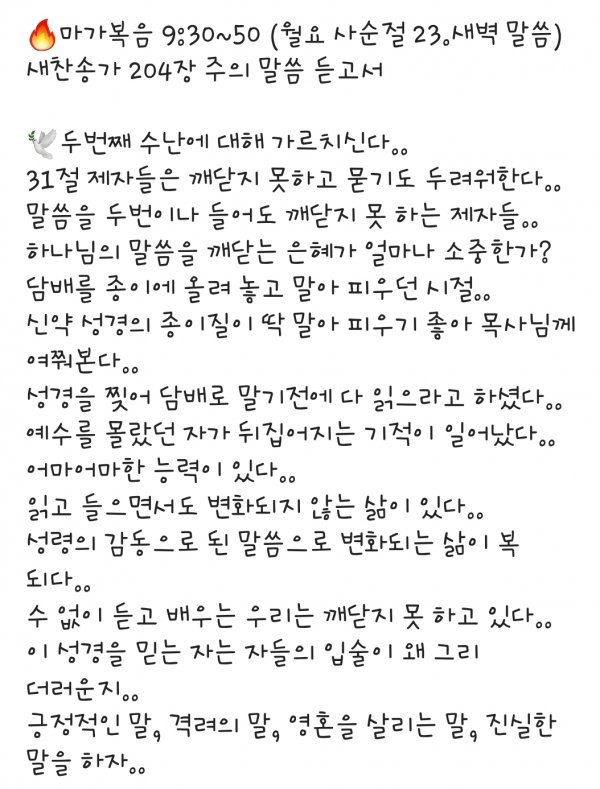 🔥마가복음 9:30~50 (월요 사순절 23.새벽 말씀)
새찬송가 204장 주의 말씀 듣고서
🕊두번째 수난에 대해 가르치신다..
31절 제자들은 깨닫지 못하고 묻기도 두려워한다..
말씀을 두번이나 들어도 깨닫지 못 하는 제자들..
하나님의 말씀을 깨닫는 은혜가 얼마나 소중한가?
담배를 종이에 올려 놓고 말아 피우던 시절..
신약 성경의 종이질이 딱 말아 피우기 좋아 목사님께
여쭤본다..
성경을 찢어 담배로 말기전에 다 읽으라고 하셨다..
예수를 몰랐던 자가 뒤집어지는 기적이 일어났다..
어마어마한 능력이 있다..
읽고 들으면서도 변화되지 않는 삶이 있다..
성령의 감동으로 된 말씀으로 변화되는 삶이 복
되다..
수 없이 듣고 배우는 우리는 깨닫지 못 하고 있다..
이 성경을 믿는 자는 자들의 입술이 왜 그리
더러운지..
긍정적인 말, 격려의 말, 영혼을 살리는 말, 진실한
말을 하자..